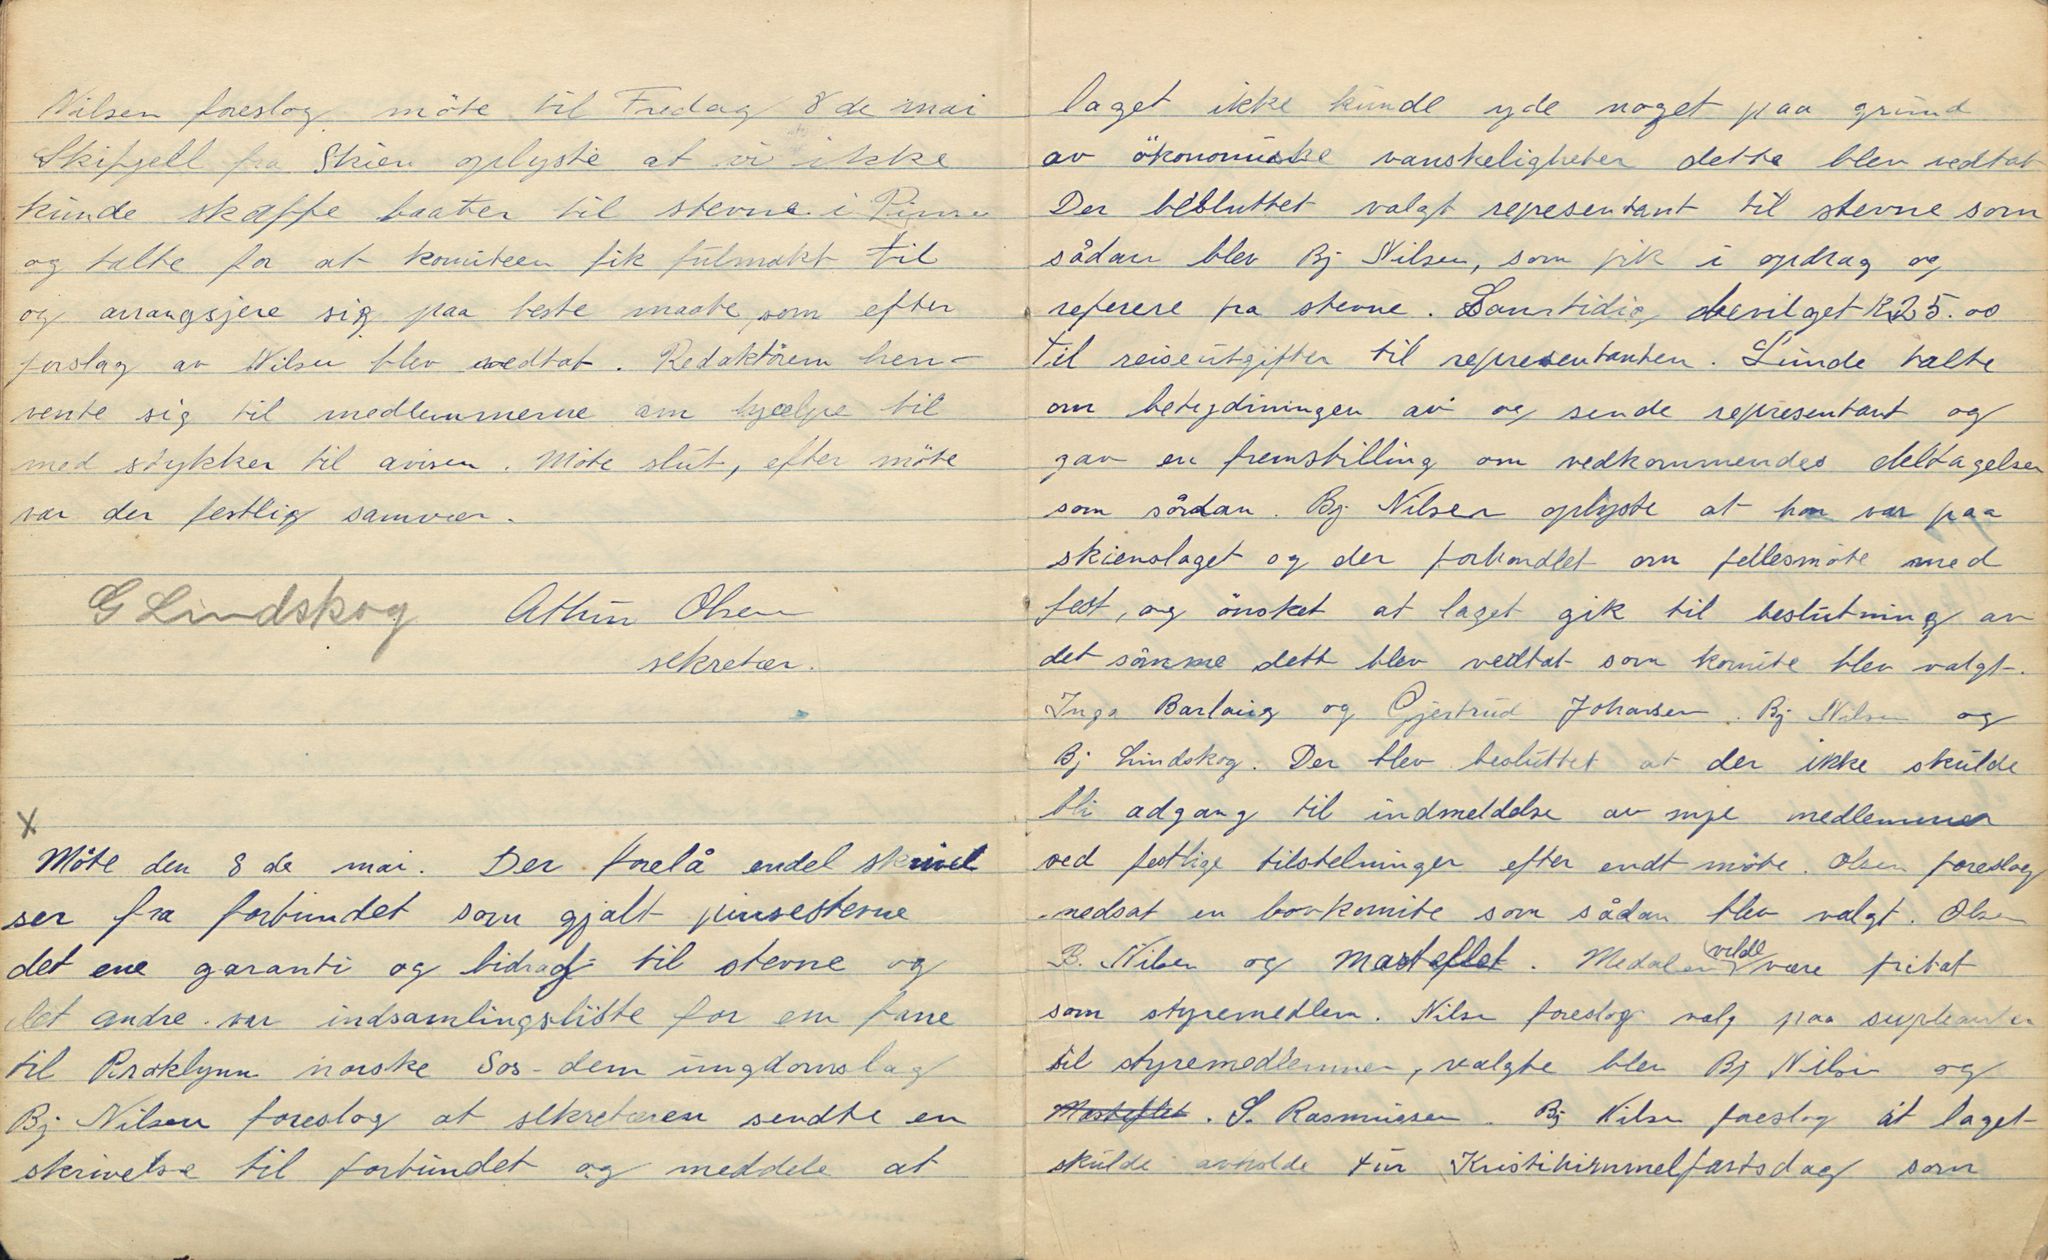 Nilsen foreslog møte til Fredag 8 de mai
Skifjell fra Skien oplyste at vi ikke
kunde skaffe baater til stevne i
og talte for at komiteen fik fulmakt til
og arrangsjere sig paa beste maate, som efter
forslag av Nilsen blev vedtat. Redaktören hen-
vente sig til medlemmerne om hjælpe til
med stykker til avisen. Möte slut, efter möte
var der festlig samvær.
G Lindskog Athur Olsen
sekretær.
X
Möte den 8 de mai. Der forelå endel skrivel
ser fra forbundet som gjalt pinsestevne
det ene garanti og bidrag til stevne og
det andre var indsamlingsliste for en fane
til norske Sos-dem ungdomslag
Bj Nilsen foreslog at sekretæren sendte en
skrivelse til forbundet og meddele at
laget ikke kunde yde noget paa grund
av ökonomiske vanskeligheter dette blev vedtat
Der besluttet valgt representant til stevne som
sådan blev Bj Nilsen, som fik i opdrag og
referere fra stevne. Samtidig bevilget K 25.00
til reiseutgifter til representanten. Lunde talte
om betydningen av og sende representant og
gav en fremstilling om vedkommendes deltagelse
som sådan. Bj Nilsen oplyste at han var paa
skienslaget og der forhandlet om fellesmöte med
fest, og önsket at laget gik til beslutning av
det samme dett blev vedtat som komite blev valgt.
Inga og Gjertrud Johansen. Bj Nilsen og
Bj Lindskog. Der blev besluttet at der ikke skulde
bli adgang til indmeldelse av nye medlemmer
ved festlige tilstelninger efter endt möte. Olsen foreslog
nedsat en lovkomite som sådan blev valgt. Olsen
B. Nilsen og. Medalen vilde være fritat
som styremedlem. Nilsen foreslog valg paa supleanter
til styremedlemmer, valgte blev Bj Nilsen og
S. Rasmussen. Bj Nilsen foreslog at laget
skulde avholde tur Kristihimmelfartsdag som